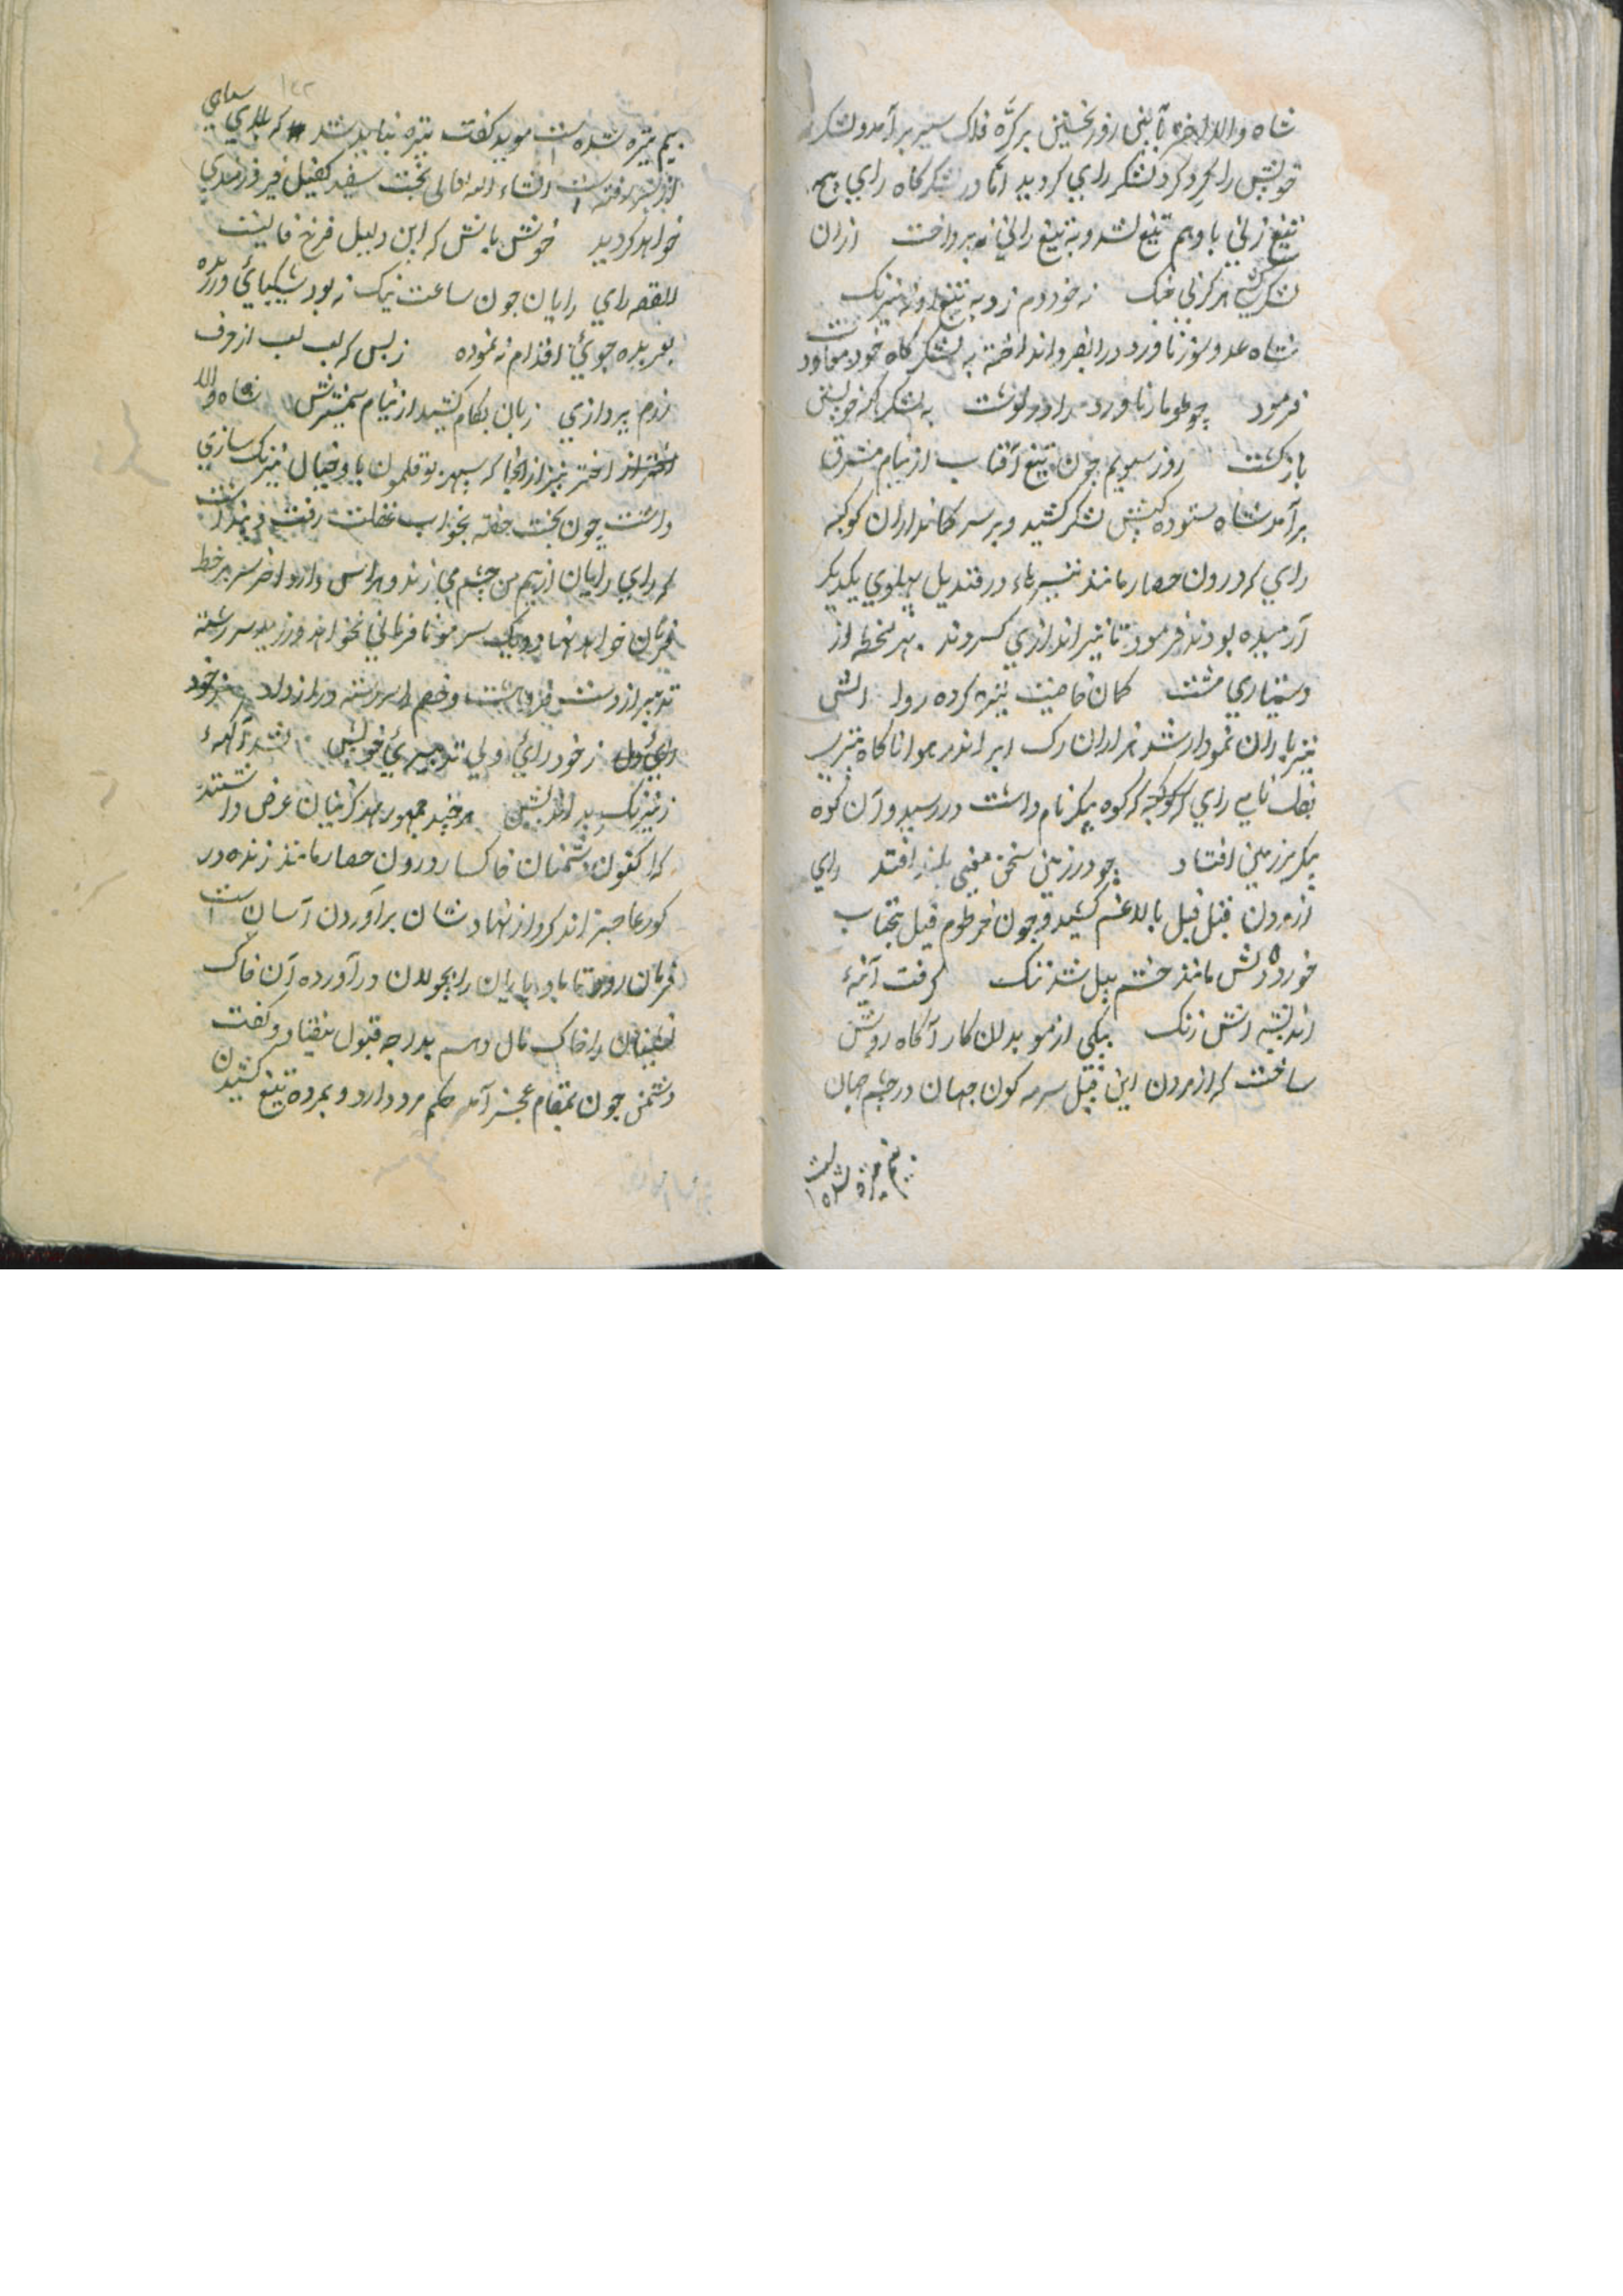 شاه والا اختر بآئین روز نخستین بر کرّه فلک سیر برآمد و لشکر
خویش را بگرد گرد لشکر رای گردید اما در لشکرگاه رای هیچ
تیغ زنی با وهم تیغ نشد و به تیغ رانی نه پرداخت ازان
لشکر هرگز نی خنک نه خود دم زد به تیغ و نه نیرنگ
شاه عدو سوز ناورد در انداخته به لشکرگاه خود معاودت
فرمود چو طومار ناورد را در نوشت به لشکرگه خویش
بازگشت روز سیویم چون تیغ آفتاب از نیام مشرق
برآمد شاه ستوده کیش لشکر کشید و بر سر کمانداران کوکبه
رای که درون حصار مانند تیرهاء در قندیل پهلوی یکدیگر
آرمیده بودند فرمود تا تیر اندازی کردند بهر لحظه از
دستیاری مشت کمان خاصیت تیز کرده روا
تیر باران نمودار شد هزاران رگ ابر اندر هوا ناگاه تیری
بفیل نامی رای که کوکبه کوه پیکر نام داشت در رسید و آن کوه
پیکر بر زمین افتاد چو در زمین سخن معنی بلند افتد رای
از مردن فیل فیل بالا غم کشید و چون خرطوم فیل بتاب
خورد دلش مانند چشم پیل شد تنگ گرفت آئنهٔ
اندیشه اش زنگ یکی از موبدان کار آگاه روشن
ساخت که از مردن این فیل سرمه گون جهان در چشم جهان
بیم تیره شده است
بیم تیره شده است موبد گفت تیره نباید شد که بلای سیاهی
از لشکر رفته است انشاء الله تعالی بخت سفید کفیل فیروزمندی
خواهد گردید خوش باش که این دلیل فرخ فالیست
القصه رای رایان چون ساعت نیک نه بود شکیبائی ورزیده
بعربده جوئی اقدام نه نموده ز بس که لب لب از حرف
رزم پردازی زبان بکام کشید از نیام شمشیرش شاه والا
اختر نیز از آنجا که سپهر بوقلمون با او خیال نیرنگ سازی
داشت چون بخت خفته بخواب غفلت رفت و پنداشت
که رای رایان از بیم من چشم می زند و هراس دارد آخر سر بر خط
فرمان خواهد نهاد و یک سر مو نافرمانی نخواهد ورزید سر رشته
تدبیر از دست فرو هشت و خصم را سررشته دراز داد
رای ز خود رائی و بی تدبیری خویش نشد آگه
ز نیرنگ بد اندیش هرچند جمهور هنرگزینان عرض داشتند
که اکنون دشمنان خاکسار درون حصار مانند زنده در
گور عاجز اند گرد از نهاد شان برآوردن آسان است
فرمان رود تا باد پایان را بجولان درآورده آن خاک
نشینان را خاک مال دهیم بدرجه قبول نیفتاد و گفت
دشمن چون بمقام عجز آمد حکم مرده دارد و بمرده تیغ کشیدن